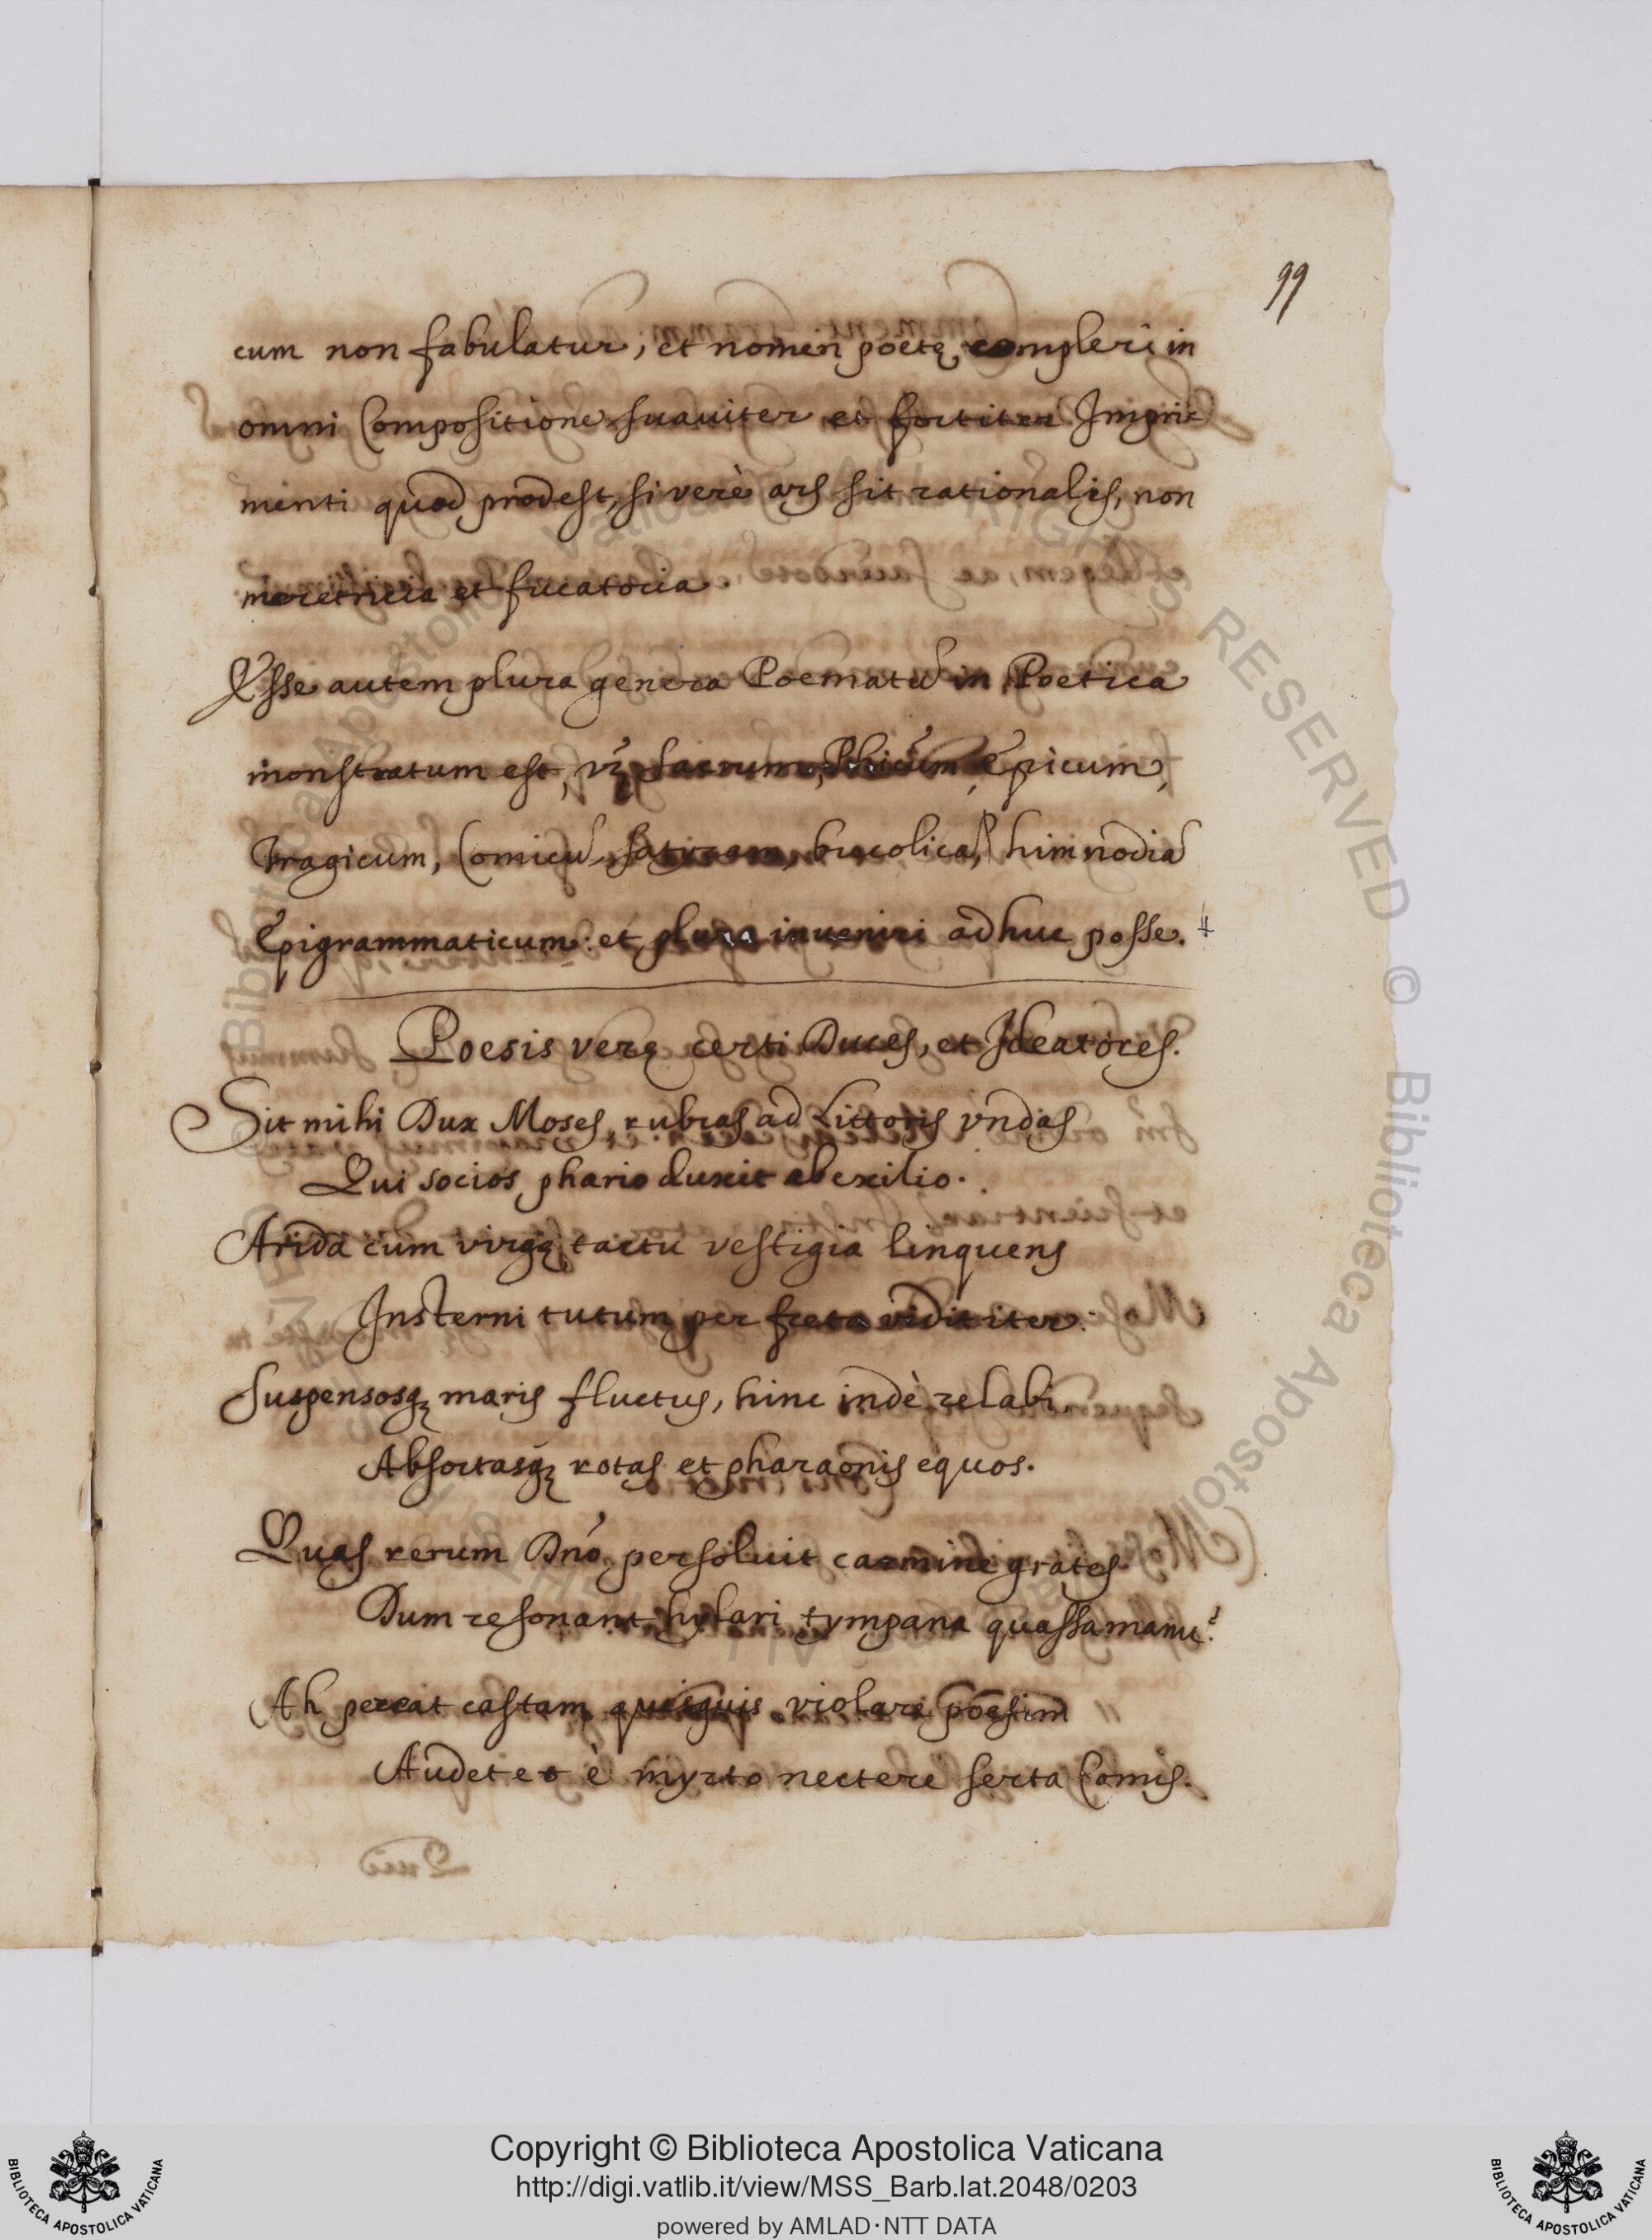 99
cum non fabulatur, et nomen poetę compleri in
omni Compositione suauiter et fortiter Impri-
menti quod prodest, si verè ars sit rationalis, non
meretricia et fucatoria.
Esse autem plura genera Poematũ in Poetica
monstratum est, vz sacrum, Epicum,
Tragicum, Comicũ, satyram, bucolicã, himnodiã
Epigrammaticum: et plura inueniri adhuc posse.
Poesis verę certi Duces, et Ideatores.
Sit mihi Dux Moses, rubras ad Littoris vndas
Qui socios phario duxit ab exilio.
Arida cum virgę tactu vestigia linquens
Insterni tutum per freta vidit iter.
Suspensosqȝ maris fluctus, hinc indè relabi,
Absortasqȝ rotas et pharaonis equos.
Quas rerum Dnõ persoluit carmine grates
Dum resonant hylari tympana quassa manu?
Ah pereat castam quisquis violare poesim
Audet et è myrto nectere serta Comis.
Copyright © Biblioteca Apostolica Vaticana
http://digi.vatlib.it/view/MSS_Barb.lat.2048/0203
powered by AMLAD·NTT DATA
BIBLIOTECA APOSTOLICA VATICANA
BIBLIOTECA APOSTOLICA VATICANA